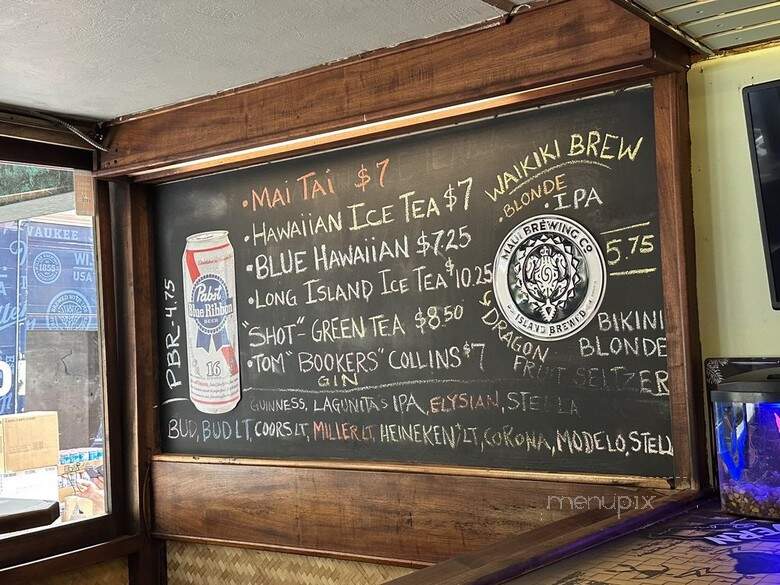 •MAI TAI $7
•HAWAIIAN ICE TEA $7
•BLUE HAWAIIAN $7.25
•LONG ISLAND ICE TEA $10.25
"SHOT" GREEN TEA $8.50
•TOM "BOOKERS" COLLINS $7
GIN
PBR-4.75
Pabst
Blue Ribbon
BEER
16
WAIKIKI BREW
•BLONDE
•IPA
5.75
MAUI BREWING CO
ISLAND BREWED
BIKINI
BLONDE
DRAGON
FRUIT SELTZER
GUINNESS, LAGUNITAS IPA, ELYSIAN, STELLA
BUD, BUD LT, COORS LT, MILLER LT, HEINEKEN LT, CORONA, MODELO, STELL
VAUKEE
WI.
USA
1855
menupix